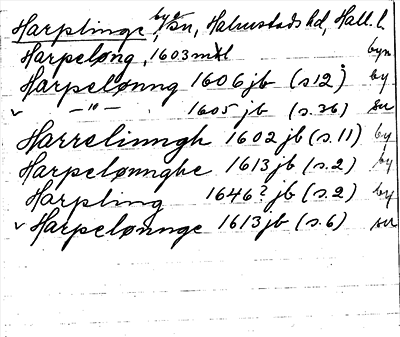 Harplinge, by o. sn, Halmstads hd, Hall. l.
Harpeløng, 1603 mtl by
Harpelønng 1606 jb (s 12) by
v — " — 1605 jb (s. 36) sn
Harrelinngh 1602 jb (s. 11) by
Harpelønnghe 1613 jb (s. 2) by
Harpling 1646? jb (s. 2) by
v Harpelønnge 1613 jb (s. 6) sn